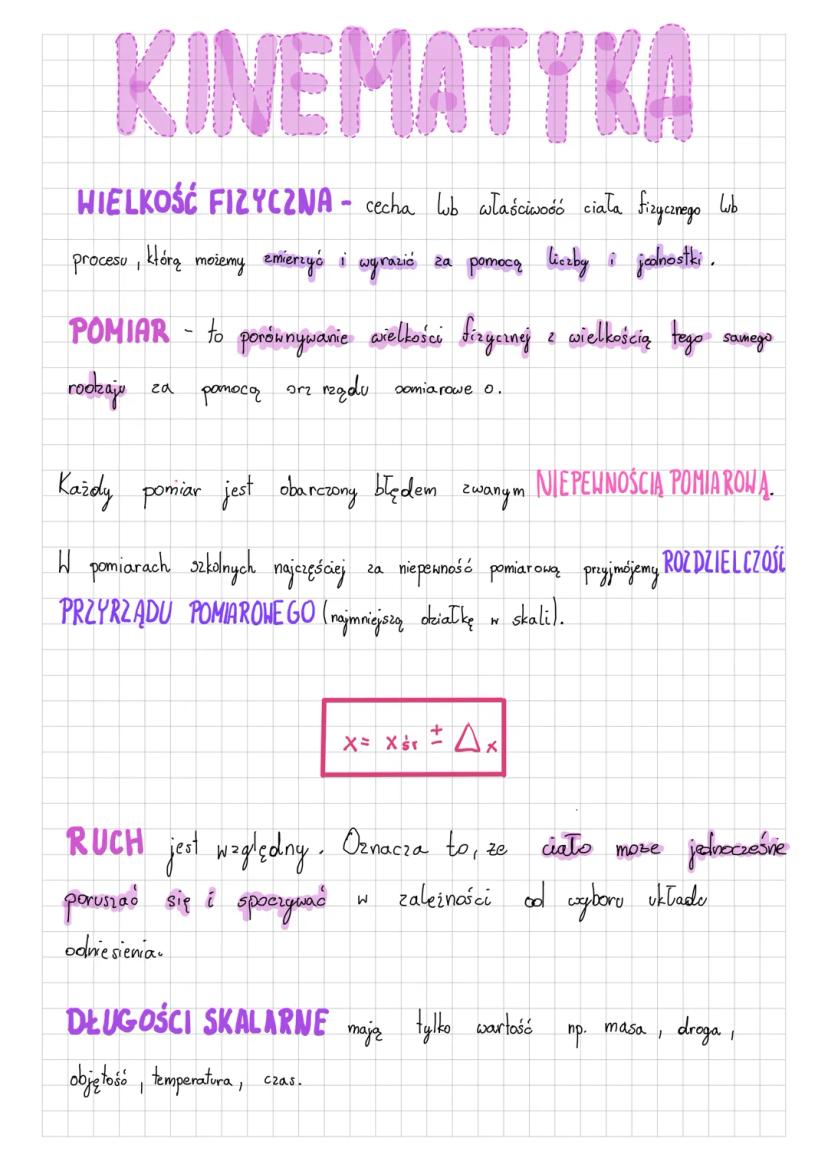 KINEMATYKA
WIELKOŚĆ FIZYCZNA - cecha lub właściwość ciała fizycznego lub
procesu, którą możemy zmierzyć i wyrazić za pomocą liczby i jednostki.
POMIAR - to porównywanie wielkości fizycznej z wielkością tego samego
rodzaju za pomocą prz rządu pomiarowe o.
Każdy pomiar jest obarczony błędem zwanym NIEPEWNOŚCIĄ POMIAROWĄ.
W pomiarach szkolnych najczęściej za niepewność pomiarową przyjmójemy ROZDZIELCZOŚĆ
PRZYRZĄDU POMIAROWEGO (najmniejszą działkę w skali).
x = x śr ± Δx
RUCH jest względny. Oznacza to, że ciało może jednocześnie
poruszać się i spoczywać w zależności od wyboru układu
odniesienia.
DŁUGOŚCI SKALARNE mają tylko wartość np. masa, droga,
objętość, temperatura, czas.